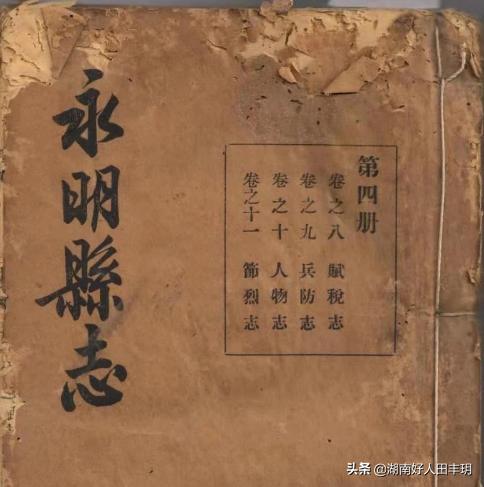 永明縣志
第四册
卷之八 賦稅志
卷之九 兵防志
卷之十 人物志
卷之十一 節烈志
头条 @湖南好人田丰玥